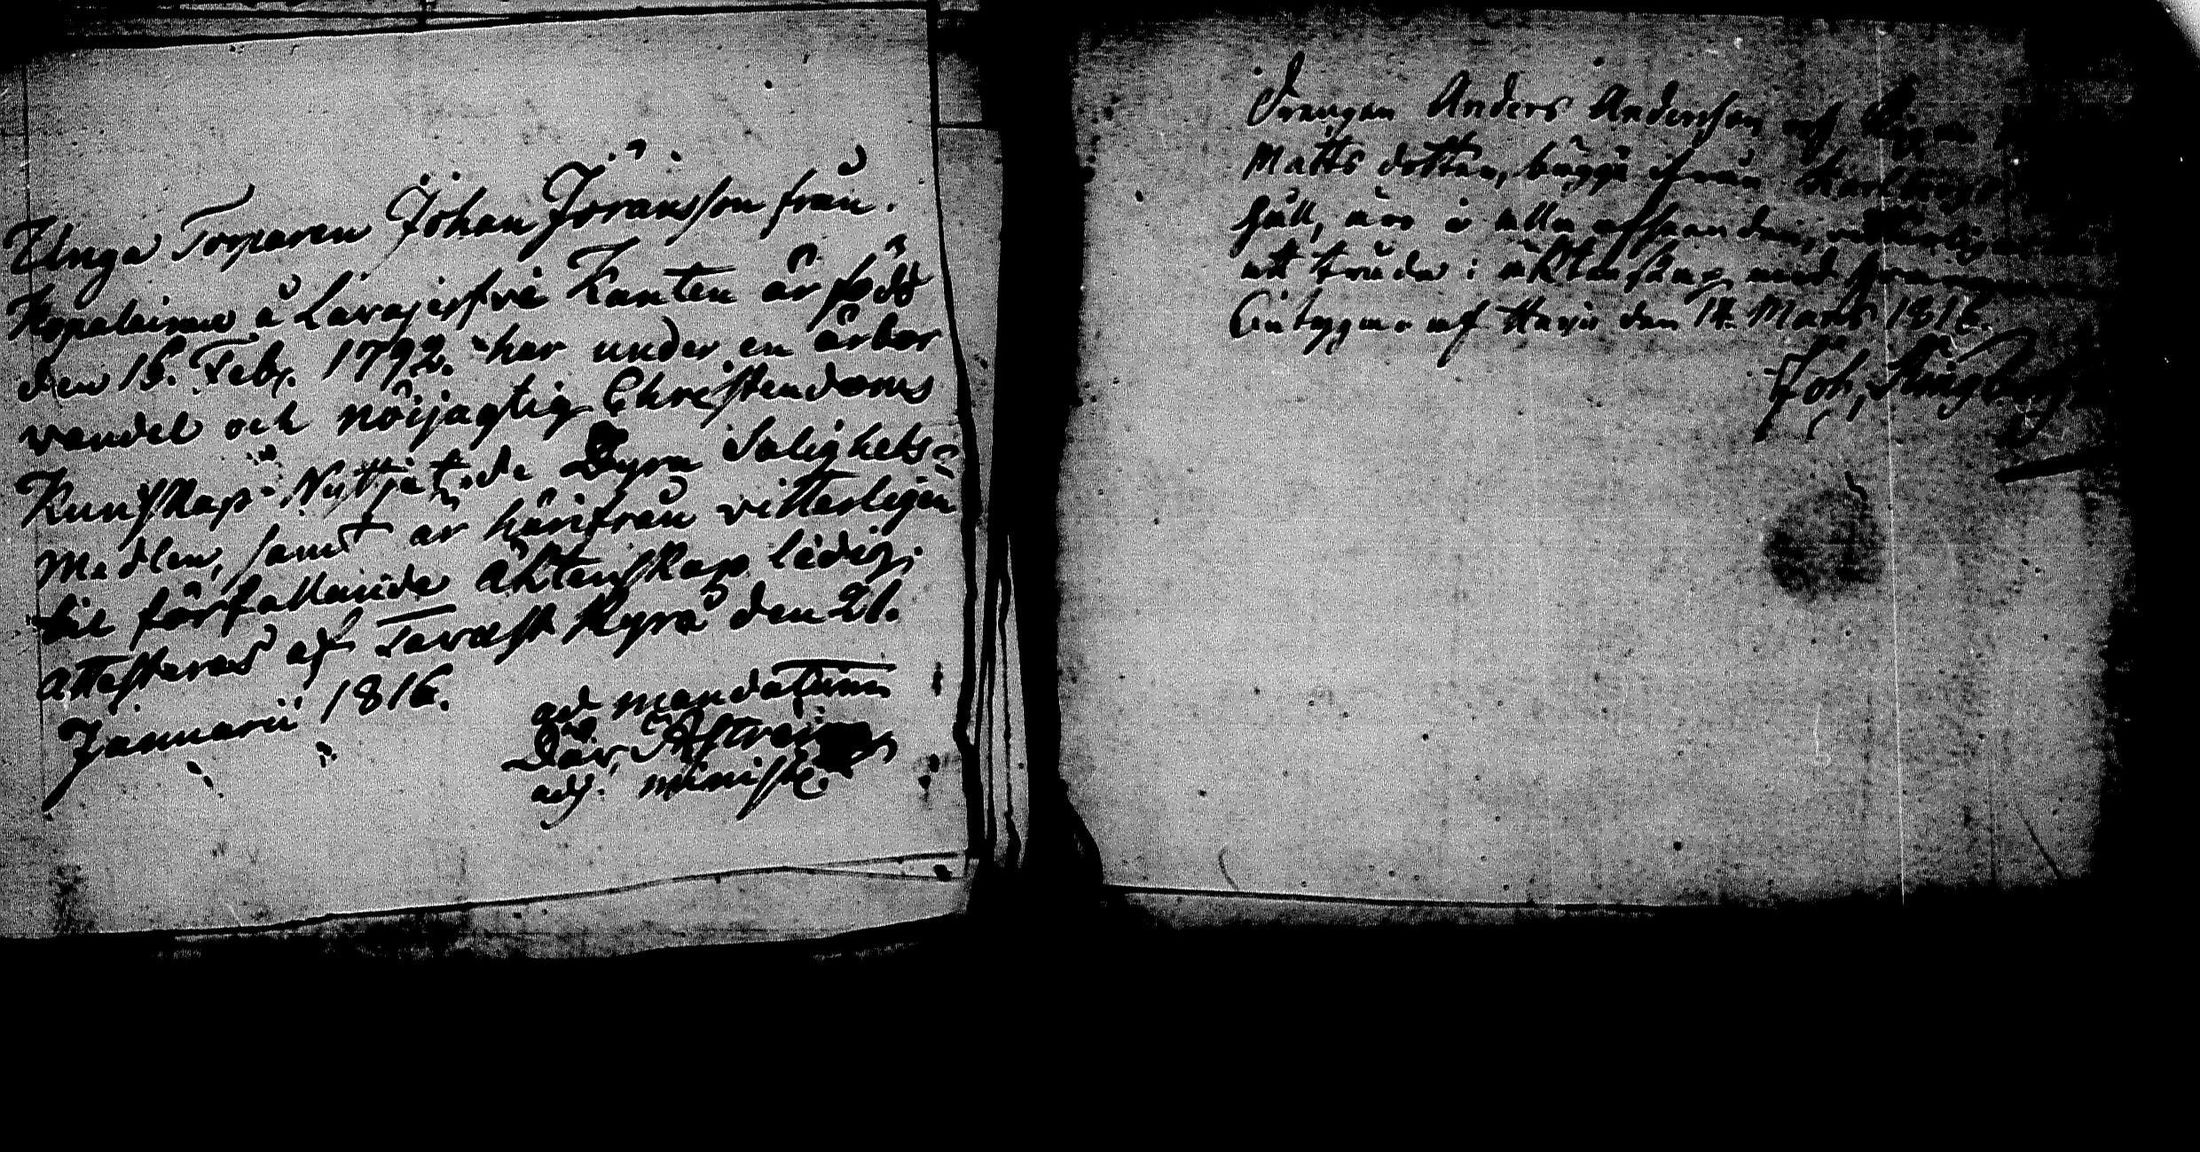 Unga Torparen Johan Jöransson från
Kopelaimu å Lavajerfvi Kanten är född
den 15. Febr. 1792. har under en ärbar
vandel och nöijagtig Christendoms
Kunskap Nyttjat de Dyra Salighets-
Medlen, samt är härifrån vitterligen
til förfallande äktenskap ledig.
Attesteras af Tavast Kyro den 21.
Januarii 1816.
ad mandatum
Dav. Astreius
adj. minist.
Drengen Anders Andersson och
Matts dotter, bägge ifrån
hull, äro i alla afseenden,
att träda i äktenskap med
af Havis den 14. Mars 1816.
Joh.